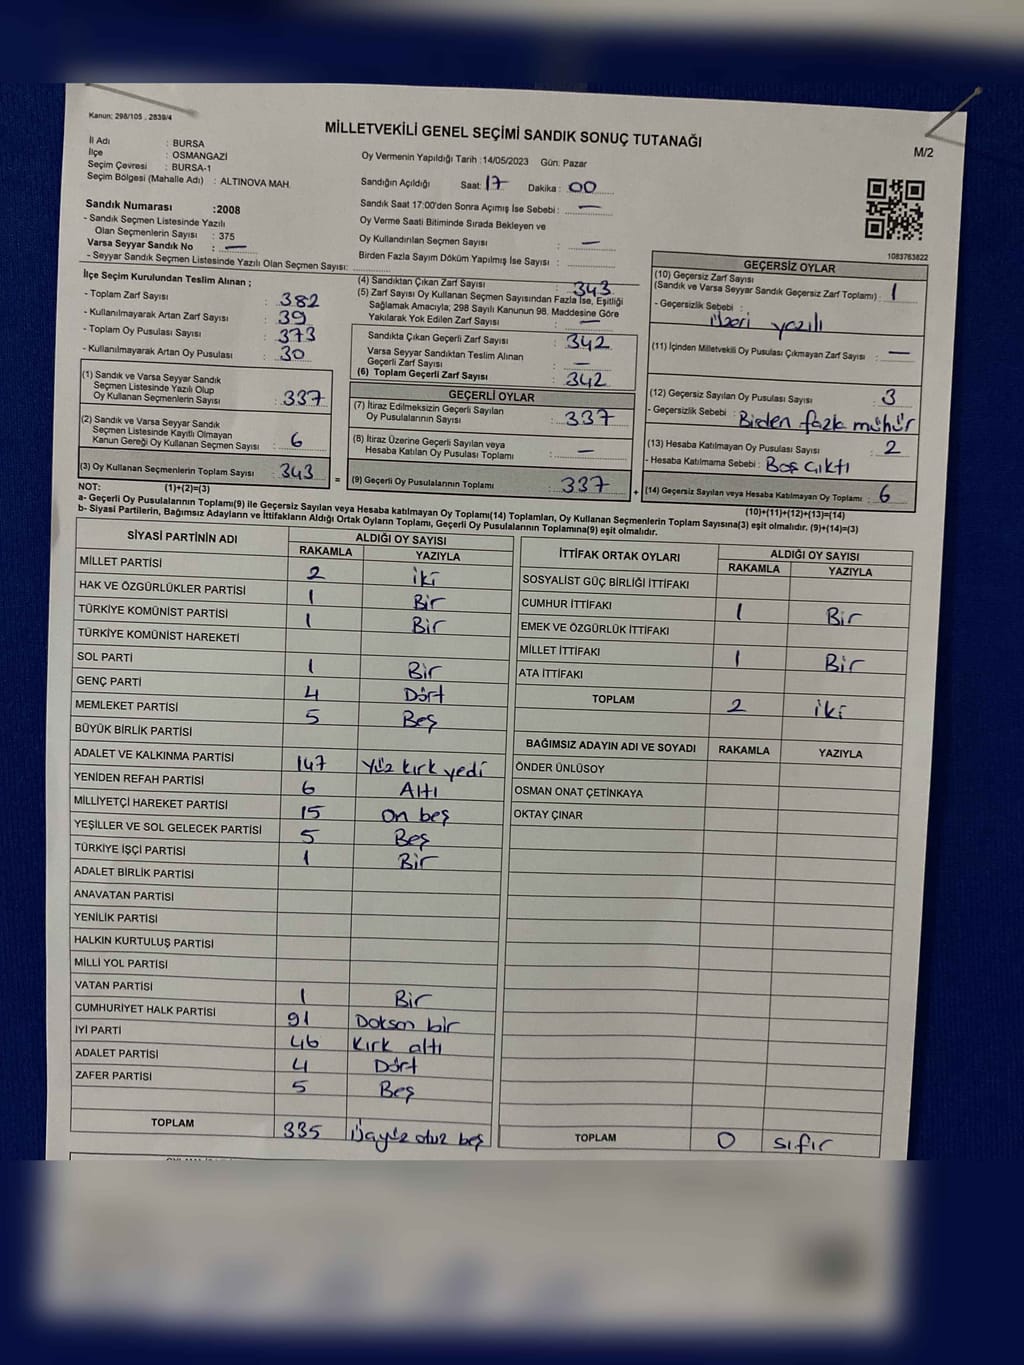 Kanun; 298/105 , 2839/4
MİLLETVEKİLİ GENEL SEÇİMİ SANDIK SONUÇ TUTANAĞI
M/2
İl Adı : BURSA
İlçe : OSMANGAZİ
Seçim Çevresi : BURSA-1
Seçim Bölgesi (Mahalle Adı) : ALTINOVA MAH.
Oy Vermenin Yapıldığı Tarih :14/05/2023 Gün: Pazar
Sandığın Açıldığı Saat: 17 Dakika : 00
Sandık Saat 17:00'den Sonra Açımış İse Sebebi : —
Oy Verme Saati Bitiminde Sırada Bekleyen ve
Oy Kullandırılan Seçmen Sayısı : —
Birden Fazla Sayım Döküm Yapılmış İse Sayısı :
Sandık Numarası :2008
- Sandık Seçmen Listesinde Yazılı
Olan Seçmenlerin Sayısı : 375
Varsa Seyyar Sandık No : —
- Seyyar Sandık Seçmen Listesinde Yazılı Olan Seçmen Sayısı:
1083763822
İlçe Seçim Kurulundan Teslim Alınan ;
- Toplam Zarf Sayısı : 382
- Kullanılmayarak Artan Zarf Sayısı : 39
- Toplam Oy Pusulası Sayısı : 373
- Kullanılmayarak Artan Oy Pusulası : 30
(1) Sandık ve Varsa Seyyar Sandık
Seçmen Listesinde Yazılı Olup
Oy Kullanan Seçmenlerin Sayısı : 337
(2) Sandık ve Varsa Seyyar Sandık
Seçmen Listesinde Kayıtlı Olmayan
Kanun Gereği Oy Kullanan Seçmen Sayısı : 6
(3) Oy Kullanan Seçmenlerin Toplam Sayısı : 343
(4) Sandıktan Çıkan Zarf Sayısı : 343
(5) Zarf Sayısı Oy Kullanan Seçmen Sayısından Fazla İse, Eşitliği
Sağlamak Amacıyla, 298 Sayılı Kanunun 98. Maddesine Göre
Yakılarak Yok Edilen Zarf Sayısı : —
Sandıkta Çıkan Geçerli Zarf Sayısı : 342
Varsa Seyyar Sandıktan Teslim Alınan
Geçerli Zarf Sayısı : —
(6) Toplam Geçerli Zarf Sayısı : 342
GEÇERLİ OYLAR
(7) İtiraz Edilmeksizin Geçerli Sayılan
Oy Pusulalarının Sayısı : 337
(8) İtiraz Üzerine Geçerli Sayılan veya
Hesaba Katılan Oy Pusulası Toplamı : —
= (9) Geçerli Oy Pusulalarının Toplamı 337 +
GEÇERSİZ OYLAR
(10) Geçersiz Zarf Sayısı
(Sandık ve Varsa Seyyar Sandık Geçersiz Zarf Toplamı) : 1
- Geçersizlik Sebebi :
üzeri yazılı
(11) İçinden Milletvekili Oy Pusulası Çıkmayan Zarf Sayısı : —
(12) Geçersiz Sayılan Oy Pusulası Sayısı : 3
- Geçersizlik Sebebi : Birden fazla mühür
(13) Hesaba Katılmayan Oy Pusulası Sayısı : 2
- Hesaba Katılmama Sebebi : Boş Çıktı
(14) Geçersiz Sayılan veya Hesaba Katılmayan Oy Toplamı : 6
NOT: (1)+(2)=(3)
(10)+(11)+(12)+(13)=(14)
a- Geçerli Oy Pusulalarının Toplamı(9) ile Geçersiz Sayılan veya Hesaba katılmayan Oy Toplamı(14) Toplamları, Oy Kullanan Seçmenlerin Toplam Sayısına(3) eşit olmalıdır. (9)+(14)=(3)
b- Siyasi Partilerin, Bağımsız Adayların ve İttifakların Aldığı Ortak Oyların Toplamı, Geçerli Oy Pusulalarının Toplamına(9) eşit olmalıdır.
SİYASİ PARTİNİN ADI ALDIĞI OY SAYISI
RAKAMLA YAZIYLA
MİLLET PARTİSİ 2 iki
HAK VE ÖZGÜRLÜKLER PARTİSİ 1 Bir
TÜRKİYE KOMÜNİST PARTİSİ 1 Bir
TÜRKİYE KOMÜNİST HAREKETİ
SOL PARTİ 1 Bir
GENÇ PARTİ 4 Dört
MEMLEKET PARTİSİ 5 Beş
BÜYÜK BİRLİK PARTİSİ
ADALET VE KALKINMA PARTİSİ 147 Yüz kırk yedi
YENİDEN REFAH PARTİSİ 6 Altı
MİLLİYETÇİ HAREKET PARTİSİ 15 On beş
YEŞİLLER VE SOL GELECEK PARTİSİ 5 Beş
TÜRKİYE İŞÇİ PARTİSİ 1 Bir
ADALET BİRLİK PARTİSİ
ANAVATAN PARTİSİ
YENİLİK PARTİSİ
HALKIN KURTULUŞ PARTİSİ
MİLLİ YOL PARTİSİ
VATAN PARTİSİ 1 Bir
CUMHURİYET HALK PARTİSİ 91 Doksan bir
İYİ PARTİ 46 Kırk altı
ADALET PARTİSİ 4 Dört
ZAFER PARTİSİ 5 Beş
TOPLAM 335 Üçyüz otuz beş
İTTİFAK ORTAK OYLARI ALDIĞI OY SAYISI
RAKAMLA YAZIYLA
SOSYALİST GÜÇ BİRLİĞİ İTTİFAKI
CUMHUR İTTİFAKI 1 Bir
EMEK VE ÖZGÜRLÜK İTTİFAKI
MİLLET İTTİFAKI 1 Bir
ATA İTTİFAKI
TOPLAM 2 iki
BAĞIMSIZ ADAYIN ADI VE SOYADI RAKAMLA YAZIYLA
ÖNDER ÜNLÜSOY
OSMAN ONAT ÇETİNKAYA
OKTAY ÇINAR
TOPLAM 0 sıfır